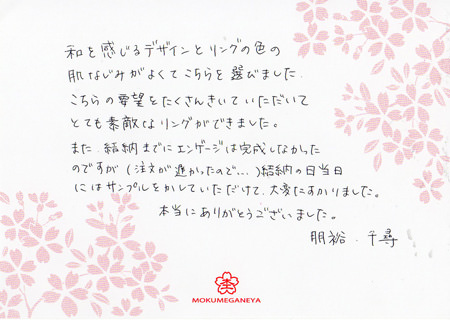 和を感じるデザインとリングの色の
肌なじみがよくてこちらを選びました。
こちらの要望をたくさんきいていただいて
とても素敵なリングができました。
また、結納までにエンゲージは完成しなかった
のですが(注文が遅かったので…)結納の日当日
にはサンプルをかしていただけて、大変たすかりました。
本当にありがとうございました。
朋裕・千尋
MOKUMEGANEYA